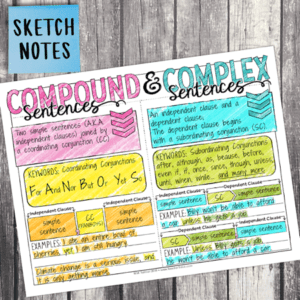 SKETCH
NOTES
COMPOUND & COMPLEX
Sentences
Sentences
Two simple sentences (A.K.A.
independent clauses) joined by
a coordinating conjunction (CC)
An independent clause and a
dependent clause.
The dependent clause
begins with
a subordinating conjunction (SC)
KEYWORDS: Coordinating Conjunctions
For And Nor But Or Yet So
KEYWORDS: Subordinating Conjunctions
after, although, as, because, before,
even if, if, once, since, though, unless,
until, when, while, and many more.
Independent Clause
simple
sentence
CC
(FANBOYS)
Independent Clause
simple
sentence
EXAMPLES: I ate an entire bowl of
cherries, yet I am still hungry.
Climate change is a serious issue, and
it is only getting worse.
Independent Clause
simple sentence
Dependent Clause
SC
simple sentence
EXAMPLE: Ben won't be able to afford
a car unless he gets a job.
Dependent Clause
SC
simple sentence
Independent Clause
simple sentence
EXAMPLE: Unless Ben gets a job,
he won't be able to afford a car.